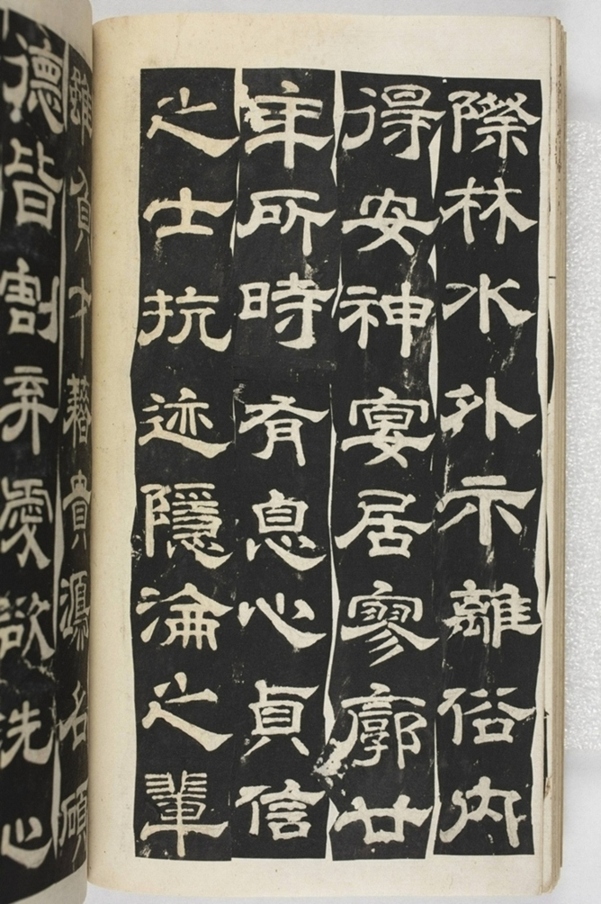 際林水外示離俗內
得安神宴居寥廓廿
年所時有息心貞信
之士抗迹隱淪之輩
雖負才藉貴鴻名碩
德皆割弃愛欲洗心